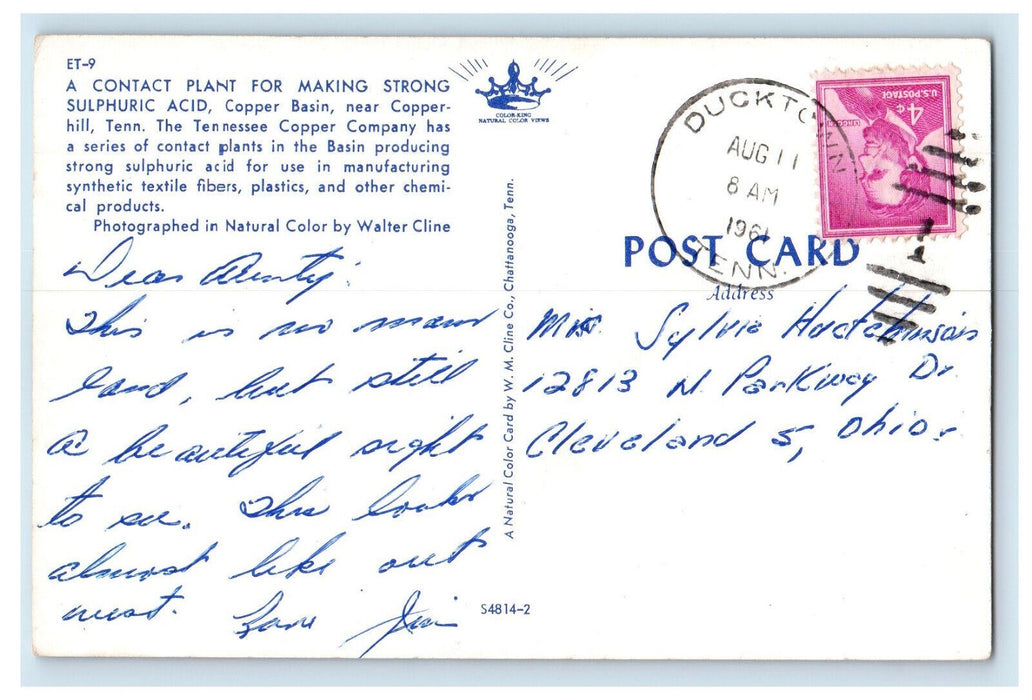 ET-9
A CONTACT PLANT FOR MAKING STRONG
SULPHURIC ACID, Copper Basin, near Copper-
hill, Tenn. The Tennessee Copper Company has
a series of contact plants in the Basin producing
strong sulphuric acid for use in manufacturing
synthetic textile fibers, plastics, and other chemi-
cal products.
Photographed in Natural Color by Walter Cline
COLOR-KING
NATURAL COLOR VIEWS
DUCKTOWN
AUG 11
8 AM
1961
TENN.
U.S. POSTAGE
4¢
LINCOLN
POST CARD
Address
Dear Aunty:
This is no mans
land, but still
a beautiful sight
to see. This looks
almost like out
west. Love Jim
A Natural Color Card by W. M. Cline Co., Chattanooga, Tenn.
Sylvia Hutchinson
12813 N. ParKway Dr.
Cleveland 5, Ohio.
S4814-2